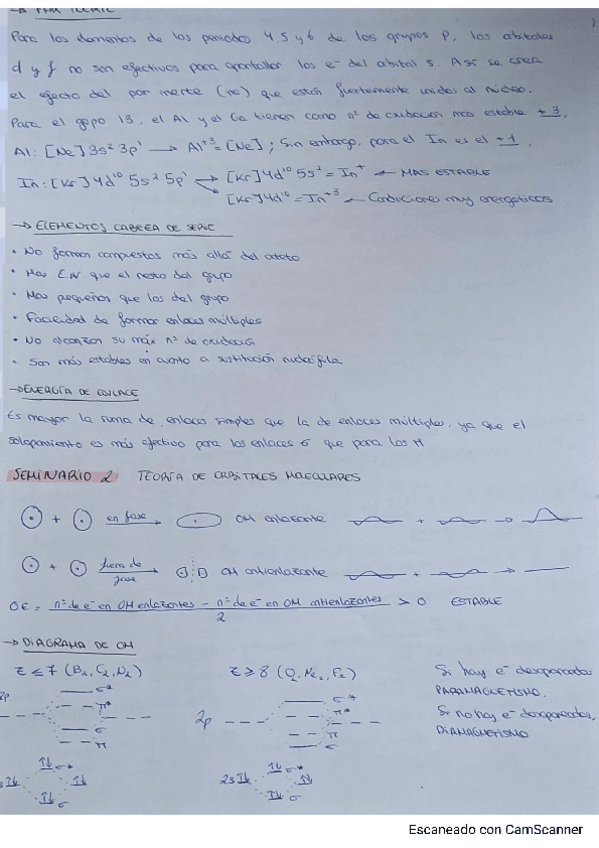 → PAR INERTE
Para los elementos de los periodos 4, 5 y 6 de los grupos P, los orbitales
d y f no son efectivos para apantallar los e⁻ del orbital s. Así se crea
el efecto del par inerte (ns) que están fuertemente unidos al núcleo.
Para el grupo 13, el Al y el Ga tienen como nº de oxidación más estable +3,
Al: [Ne] 3s² 3p¹ → Al⁺³ = [Ne] ; Sin embargo, para el In es el +1.
In: [Kr] 4d¹⁰ 5s² 5p¹ → [Kr] 4d¹⁰ 5s² = In⁺ ← MAS ESTABLE
[Kr] 4d¹⁰ = In⁺³ ← Condiciones muy energéticas
→ ELEMENTOS CABEZA DE SERIE
• No forman compuestos más allá del octeto
• Mas EN que el resto del grupo
• Mas pequeños que los del grupo
• Facilidad de formar enlaces múltiples
• No alcanzan su máx nº de oxidación
• Son más estables en cuanto a sustitución nucleófila
→ ENERGÍA DE ENLACE
Es mayor la suma de enlaces simples que la de enlaces múltiples, ya que el
solapamiento es más efectivo para los enlaces σ que para los π
SEMINARIO 2 TEORÍA DE ORBITALES MOLECULARES
+ en fase → OM enlazante + →
+ fuera de fase → OM antienlazante + →
OE = nº de e⁻ en OM enlazantes - nº de e⁻ en OM antienlazantes > 0 ESTABLE
2
→ DIAGRAMA DE OM
Z ≤ 7 (B₂, C₂, N₂) Z ≥ 8 (O₂, Ne₂, F₂) Si hay e⁻ desapareados
PARAMAGNETISMO.
Si no hay e⁻ desapareados,
DIAMAGNETISMO
2p σ* π* σ π
2p σ* π* σ π
2s σ* σ
2s σ* σ
Escaneado con CamScanner